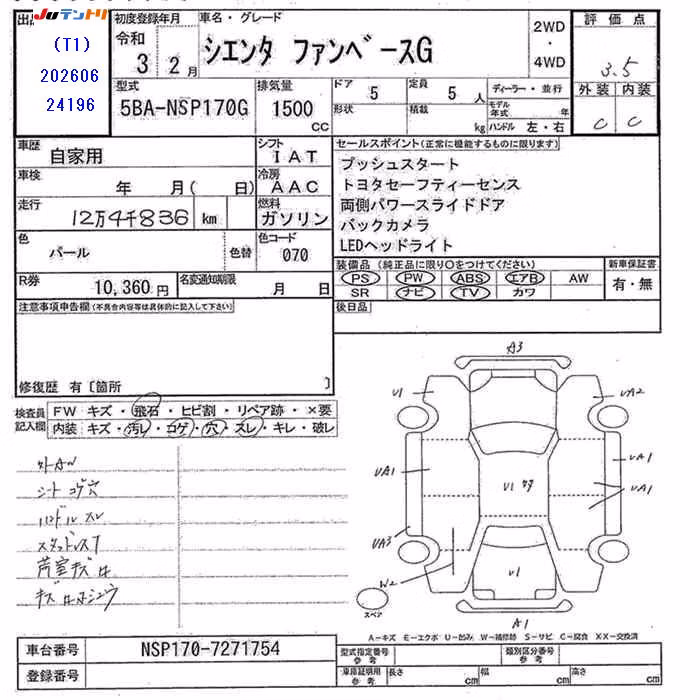 出品
JUテントリ
(T1)
202606
24196
初度登録年月
令和
3 2月
車名・グレード
シエンタ ファンベースG
2WD
・
4WD
評価点
3.5
外装 内装
C C
型式
5BA-NSP170G
排気量
1500
CC
ドア
5
形状
定員
5人
積載
kg
ディーラー・並行
モデル年式 年
ハンドル 左・右
車歴
自家用
シフト
IAT
車検
年 月( 日)
冷房
AAC
走行
12万4千836 km
燃料
ガソリン
色
パール
色替
色コード
070
R券
10,360円
名変通知期限
月 日
セールスポイント(正常に機能するものに限ります)
プッシュスタート
トヨタセーフティーセンス
両側パワースライドドア
バックカメラ
LEDヘッドライト
装備品(純正品に限り○をつけてください)
PS PW ABS エアB AW
SR ナビ TV カワ
新車保証書
有・無
後日品
注意事項申告欄(不具合内容等は具体的に記入して下さい)
修復歴 有〔箇所 〕
検査員記入欄
FW キズ・飛石・ヒビ割・リペア跡・×要
内装 キズ・汚レ・コゲ・穴・スレ・キレ・破レ
シート コゲ穴
ハンドル スレ
A3
U1
UA2
UA1
UA1
UA1
UA3
U1
W2
U1
A1
スペア
A-キズ E-エクボ U-凹み W-補修跡 S-サビ C-腐食 XX-交換済
車台番号
NSP170-7271754
登録番号
型式指定番号
参考
類別区分番号
参考
車庫証明用
参考
長さ cm
幅 cm
高さ cm